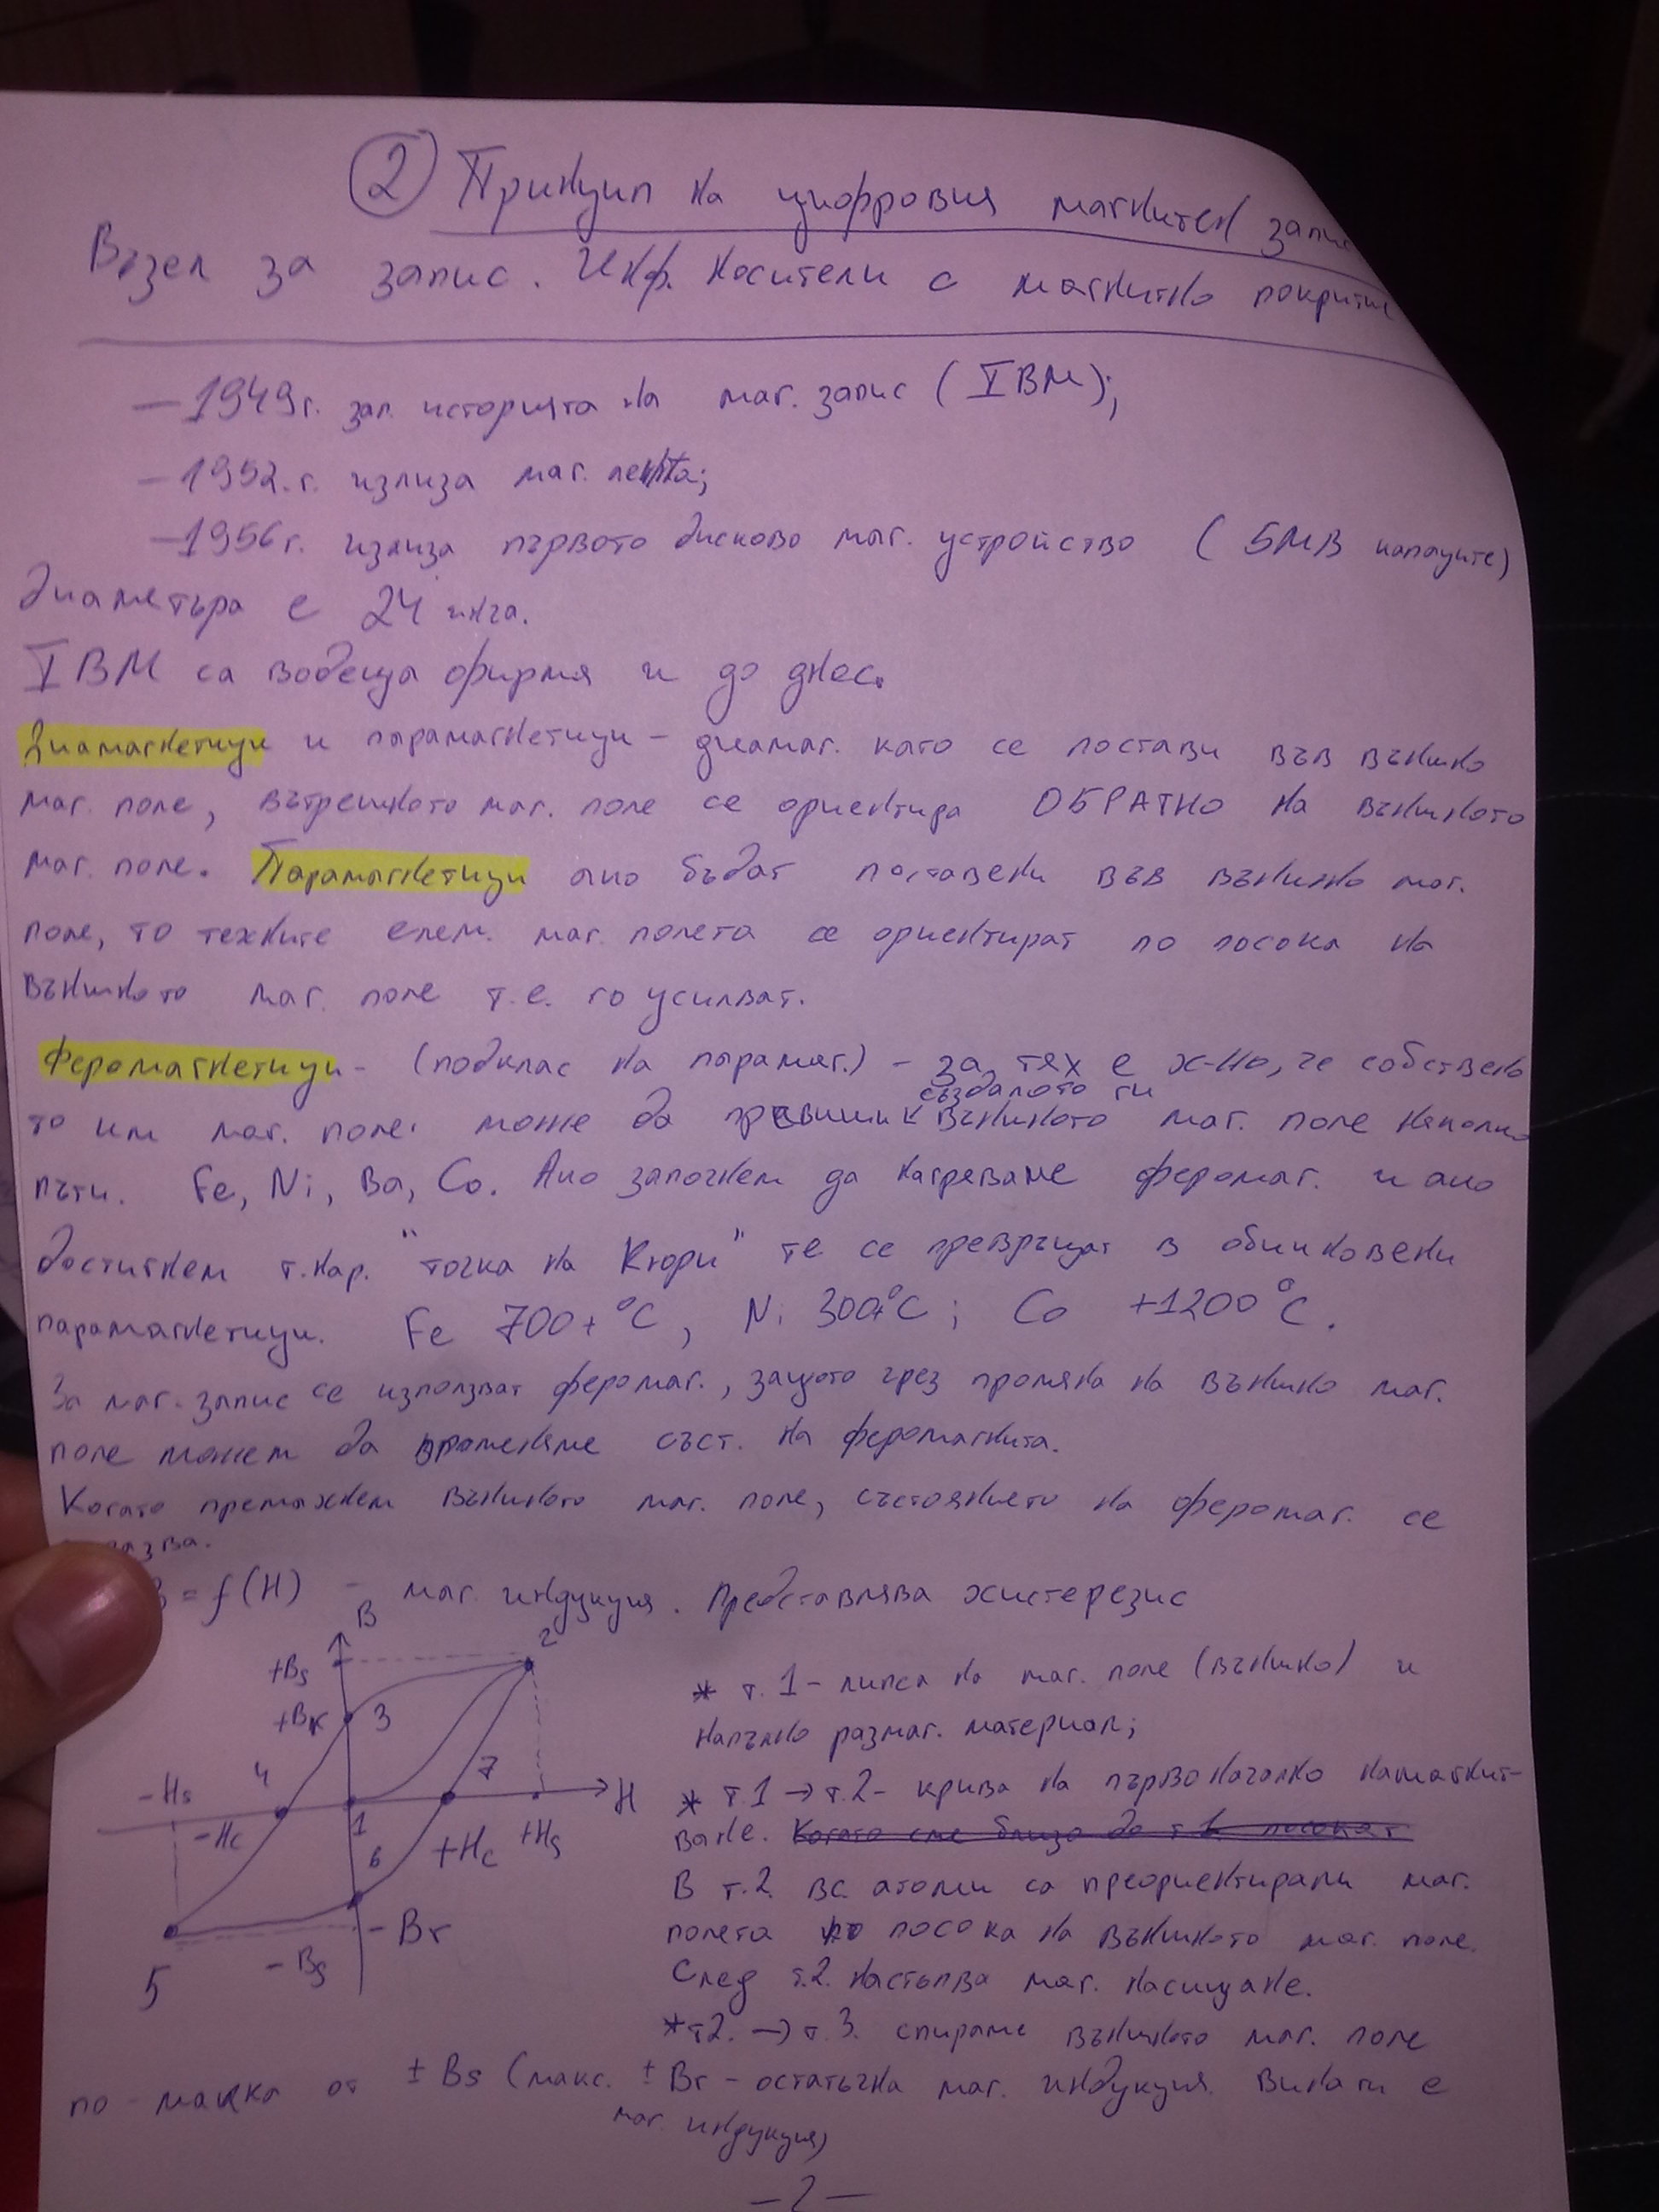 ② Принцип на цифровия магнитен запис
Възел за запис. Инф. носители с магнитно покритие
— 1949г. зап. историята на маг. запис (IBM);
— 1952.г. излиза маг. лента;
— 1956г. излиза първото дисково маг. устройство (5MB капацитет)
диаметъра е 24 инча.
IBM са водеща фирма и до днес.
Диамагнетици и парамагнетици – диамаг. като се постави във външно
маг. поле, вътрешното маг. поле се ориентира ОБРАТНО на външното
маг. поле. Парамагнетици ако бъдат поставени във външно маг.
поле, то техните елем. маг. полета се ориентират по посока на
външното маг. поле т.е. го усилват.
Феромагнетици – (подклас на парамаг.) – за тях е х-но, че собствено
създалото ги
то им маг. поле може да превиши външното маг. поле няколко
пъти. Fe, Ni, Ba, Co. Ако започнем да нагряваме феромаг. и ако
достигнем т.нар. "точка на Кюри" те се превръщат в обикновени
парамагнетици. Fe 700+ °C, Ni 300+°C; Co +1200 °C.
За маг. запис се използват феромаг., защото чрез промяна на външно маг.
поле можем да променяме съст. на феромагнита.
Когато премахнем външното маг. поле, състоянието на феромаг. се
B = f(H) – маг. индукция. Представлява хистерезис
B
2
+Bs
+Br 3
4 7
-Hs H
-Hc 1 +Hc +Hs
6
-Br
-Bs
5
* т. 1 – липса на маг. поле (външно) и
напълно размаг. материал;
* т.1 → т.2 – крива на първоначално намагнит-
ване. Когато сме близо до т
В т.2. вс. атоми са преориентирали маг.
полета по посока на външното маг. поле.
След т.2. настъпва маг. насищане.
* т2. → т.3. спираме външното маг. поле
± Br – остатъчна маг. индукция. Винаги е
по-малка от ± Bs (макс.
маг. индукция)
— 2 —